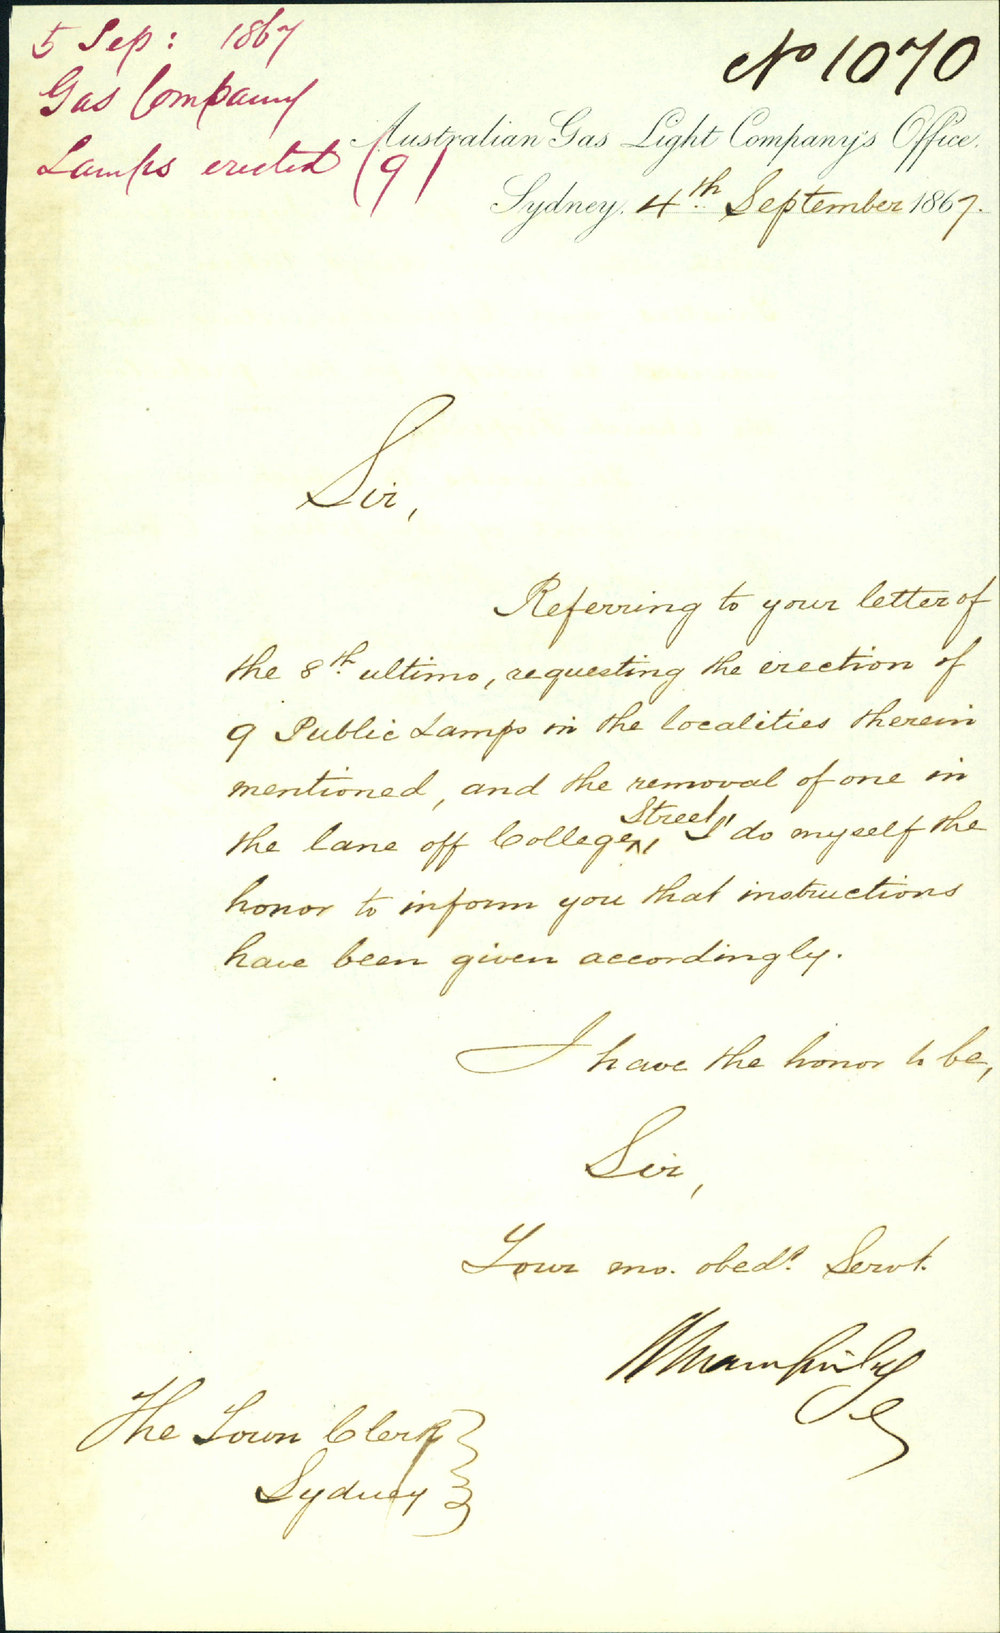 5 Sep: 1867
Gas Company
Lamps erected (9)
No 1070
Australian Gas Light Company's Office.
Sydney, 4th September 1867.
Sir,
Referring to your letter of
the 8th. ultimo, requesting the erection of
9 Public Lamps in the localities therein
mentioned, and the removal of one in
the lane off College Street, I do myself the
honor to inform you that instructions
have been given accordingly.
I have the honor to be,
Sir,
Your mo. obedt. Servt.
The Town Clerk
Sydney